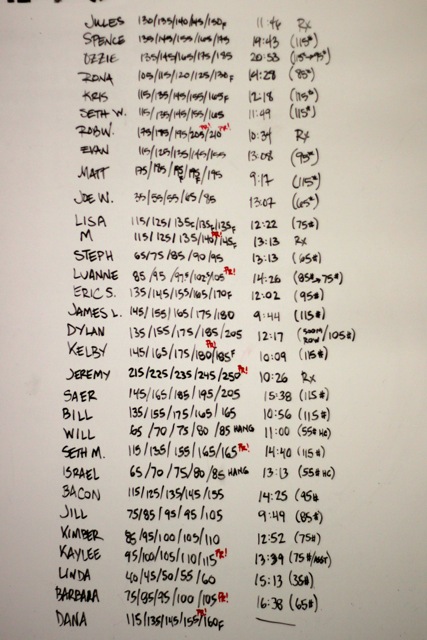 JULES 130/135/140/145/150F 11:46 Rx
SPENCE 135/145/155/165/175 19:43 (115#)
OZZIE 135/145/165/175/185 20:53
RONA 105/115/120/125/130F 14:28 (85#)
KRIS 115/135/145/155/165F 12:18 (115#)
SETH W. 115/135/145/155/165 11:49 (115#)
ROB W. 175/195/195/205/210 PR! 10:34 Rx
EVAN 115/125/135/145/155 13:08 (95#)
MATT 9:17 (115#)
JOE W. 35/55/55/65/85 13:07 (65#)
LISA 115/125/135F/135F/135F 12:22 (75#)
M 115/125/135/140/145F PR! 13:13 Rx
STEPH 65/75/85/90/95 13:13 (65#)
LUANNE 85/95/97.5/102.5/105 PR! 14:26 (85#→75#)
ERIC S. 135/145/155/165/170F 12:02 (95#)
JAMES L. 145/155/165/175/180 9:44 (115#)
DYLAN 135/155/175/185/205 12:17 (500M ROW/105#)
KELBY 145/165/175/180/185F PR! 10:09 (115#)
JEREMY 215/225/235/245/250 PR! 10:26 Rx
SAER 145/165/185/195/205 15:38 (115#)
BILL 135/155/175/165/165 10:56 (115#)
WILL 65/70/75/80/85 HANG 11:00 (55# HC)
SETH M. 115/135/155/165/165 PR! 14:40 (115#)
ISRAEL 65/70/75/80/85 HANG 13:13 (55# HC)
BACON 115/125/135/145/155 14:25 (95#
JILL 75/85/95/95/105 9:49 (85#)
KIMBER 85/95/100/105/110 12:52 (75#)
KAYLEE 95/100/105/110/115 PR! 13:39 (75#/ASST)
LINDA 40/45/50/55/60 15:13 (35#)
BARBARA 75/85/95/100/105 PR! 16:38 (65#)
DANA 115/135/145/155/160F PR!